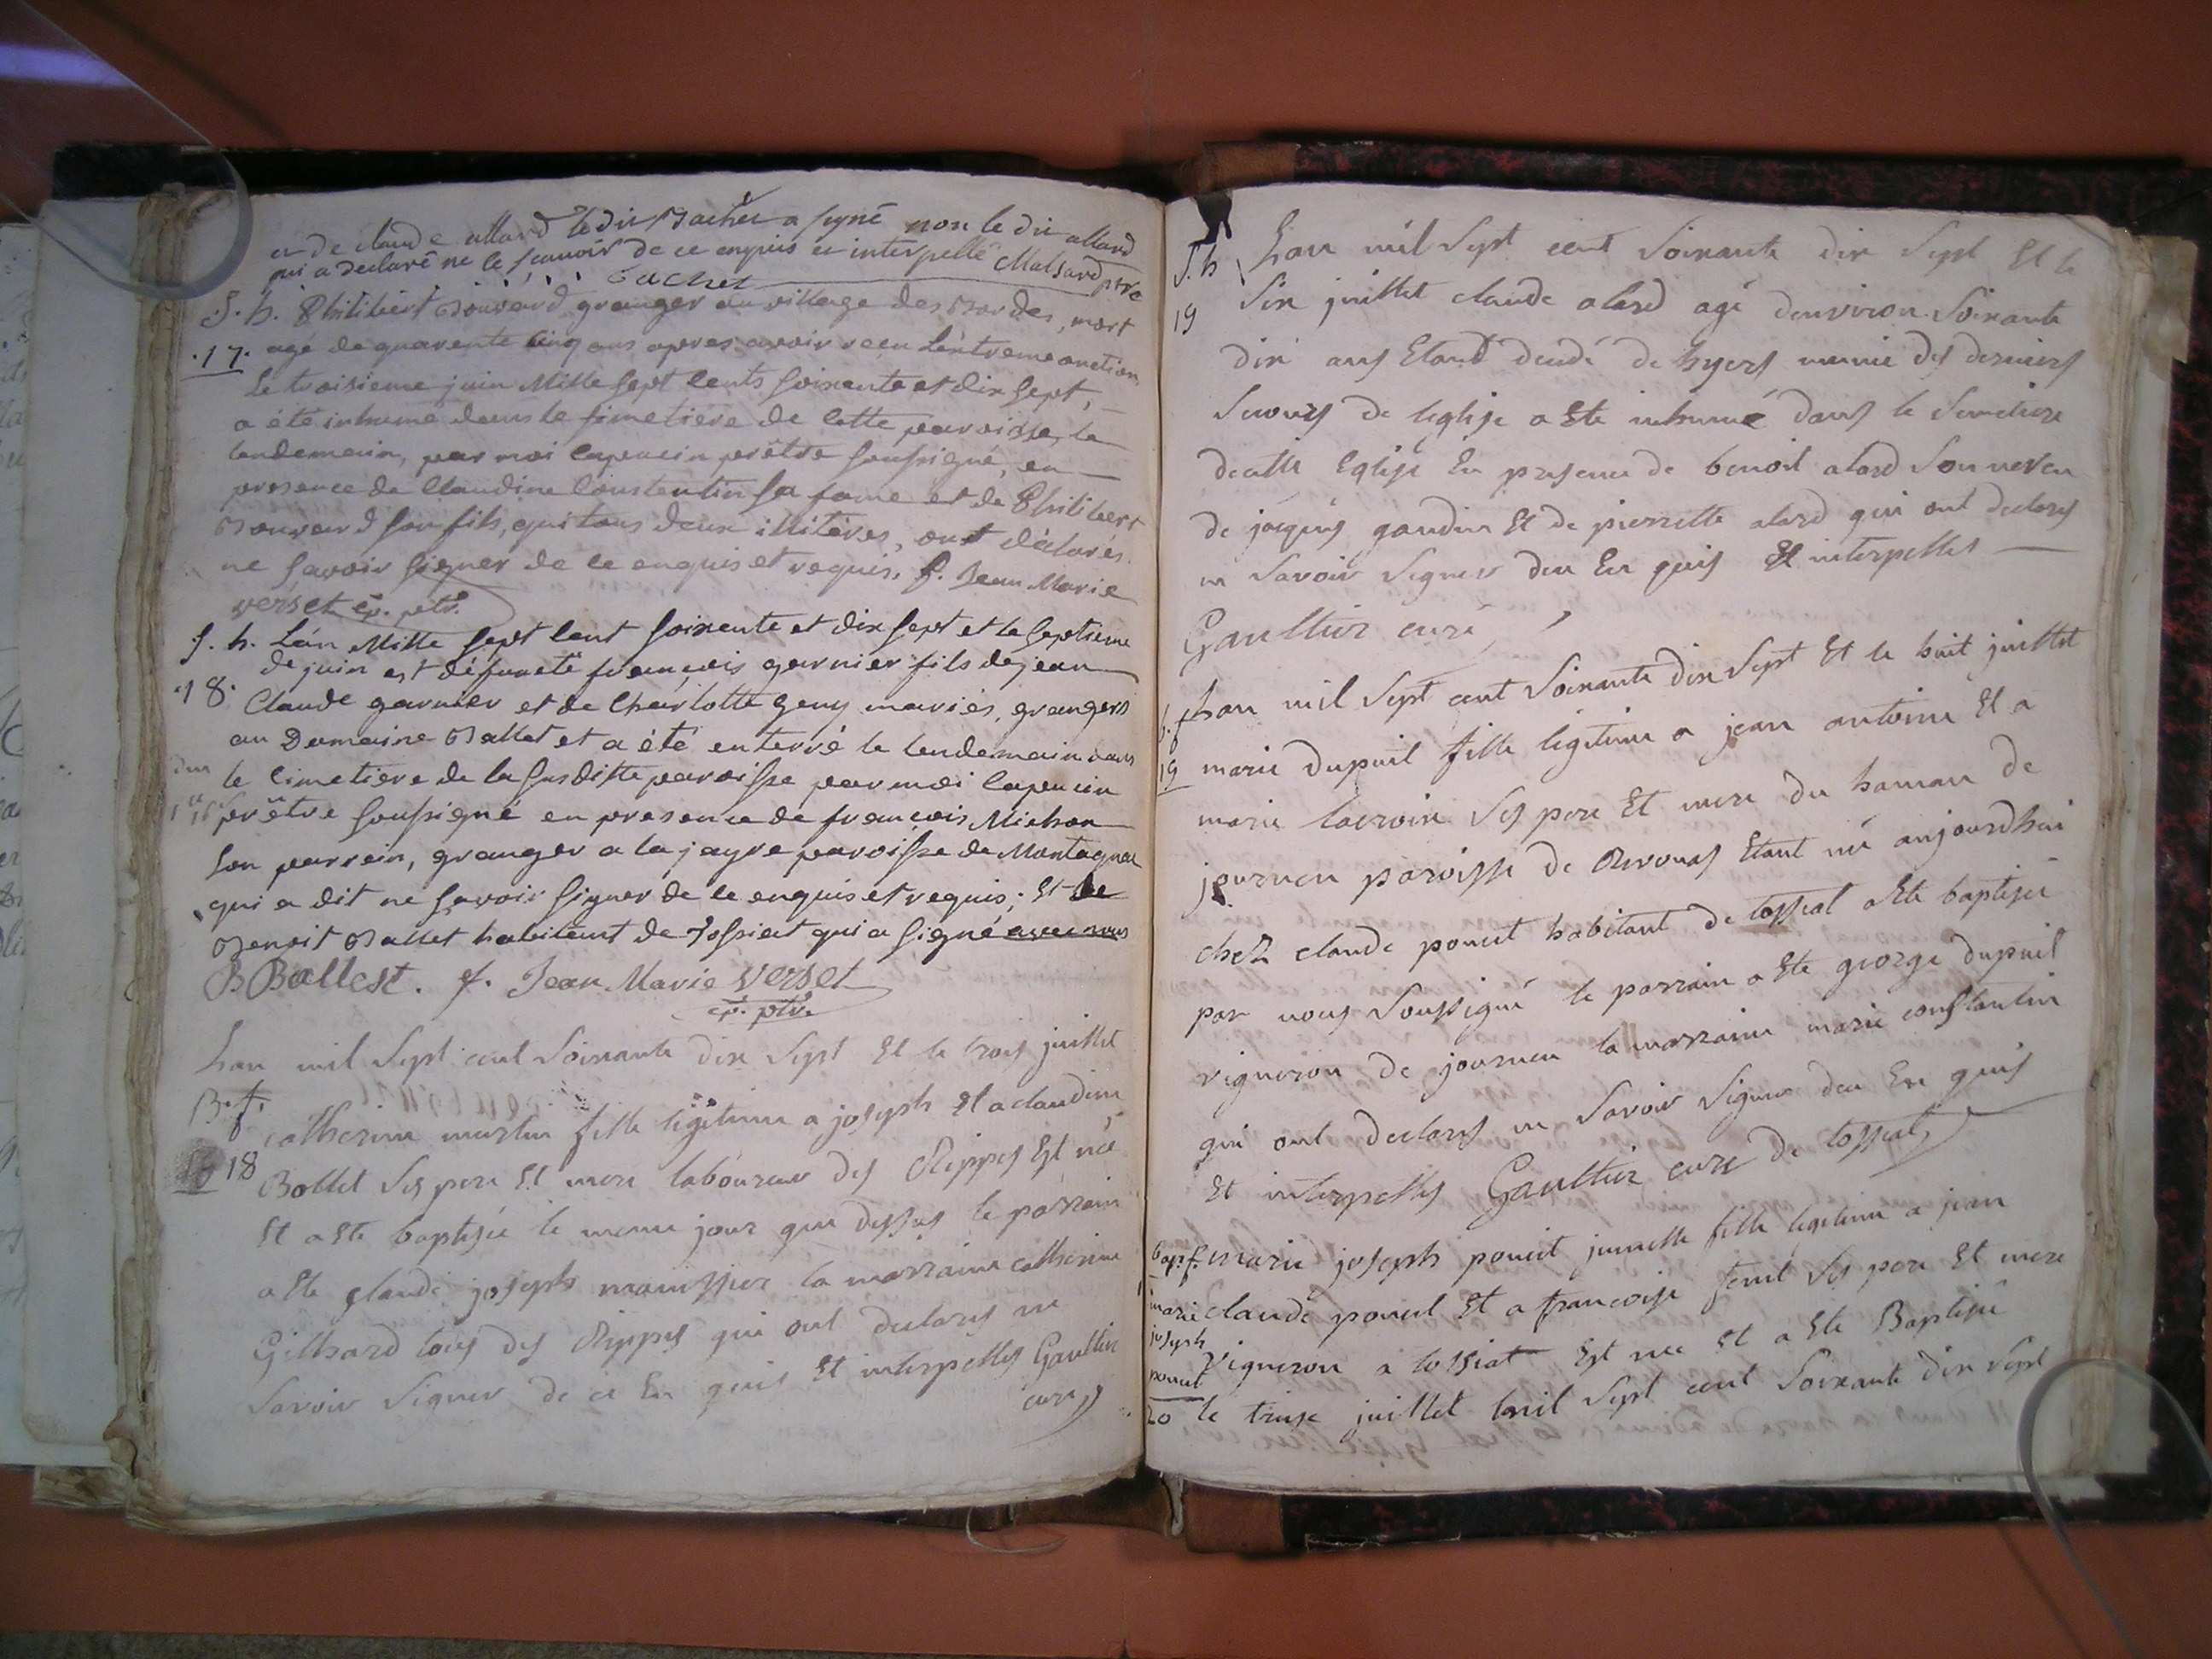 et de claude allard ledit Bachet a signé non le dit allard
qui a declaré ne le scauoir de ce enquis et interpellé Malsard ptre
Bachet
S. h. Philibert Bouvard granger au village des Bordes, mort
.17. agé de quarente cinq ans apres avoir reçu L'extreme onction
Le troisieme juin Mille sept cents soixente et dix sept,
a été inhumé dans le simetiére de cette paroisse, le
lendemain, par moi capucin prêtre soussigné, en
presence de Claudine Constentin sa fame et de Philibert
Bouvard son fils, qui tous deux illiteres, ont déclarés
ne savoir signer de ce enquis et requis. f. Jean Marie
verset cp. ptr.
S. h. L'an Mille sept cent soixente et dix sept et le septieme
de juin est défuncté françois garnier fils de jean
.18. Claude garnier et de Charlotte geny mariés, grangers
au Domaine Ballet et a été enterré le lendemain dans
le Cimetiere de la susditte paroisse par moi capucin
prêtre soussigné en presence de françois Michon
son parrein, granger a la jayre paroisse de Montagna
qui a dit ne savoir signer de ce enquis et requis; Et de
Benoit Ballet habitant de Tossiat qui a signé avec nous
B Ballest. f. Jean Marie verset
cp. ptr.
Lan mil sept cent soixante dix sept Et le trois juillet
B. f. catherine martin fille legitime a joseph Et a claudine
18 Bollet ses pere Et mere laboureur des Rippes Est née
Et a Ete baptisée le meme jour que dessus le parrain
a Ete claude joseph manissier la marraine catherine
Gilhard tous des Rippes qui ont declarés ne
savoir signer de ce En quis Et interpellés Gaultier
curé
S. h Lan mil sept cent soixante dix sept Et le
19 six juillet claude alard agé denviron soixante
dix ans Etant decédé de hyers munie des derniers
secours de leglise a Ete inhumé dans le semetiere
decette Eglise En presence de benoit alard son neveu
de jacques gaudin Et de pierrette alard qui ont declarés
ne savoir signer deu En quis Et interpellés
Gaultier curé
b. f Lan mil sept cent soixante dix sept Et le huit juillet
19 marie dupuit fille legitime a jean antoine Et a
marie lacroix ses pere Et mere du hamau de
journeu paroisse de Revonas Etant née aujourdhui
chez claude poncet habitant de tossiat a Ete baptisée
par nous soussigné le parrain a Ete george dupuit
vigneron de journeu la marraine marie constantin
qui ont declarés ne savoir signer deu En quis
Et interpellés Gaultier curé de tossiat
bap. f. marie joseph poncet jumelle fille legitime a jean
marie claude poncet Et a francoise femit ses pere Et mere
joseph
poncet vigneron a tossiat Est née Et a Ete Baptisée
20 le treize juillet mil sept cent soixante dix sept